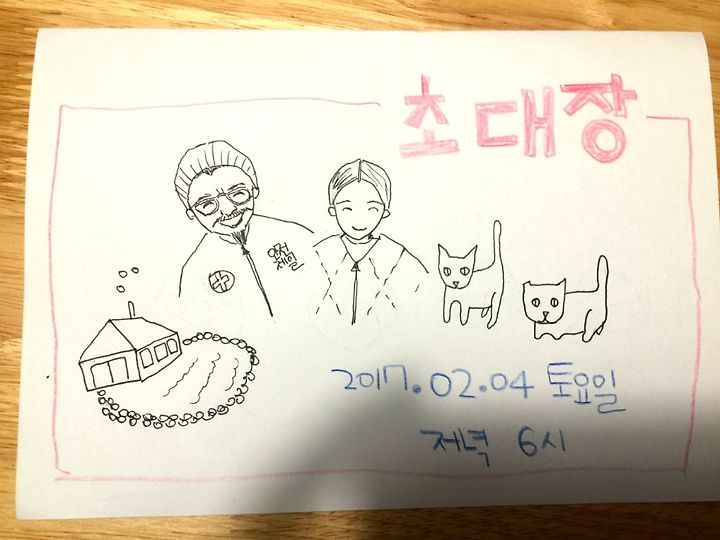 초대장
안전
제일
2017.02.04 토요일
저녁 6시